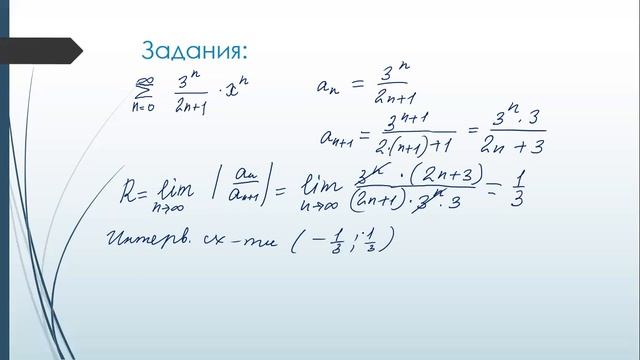 Задания:
∞ ∑ n=0 3^n/(2n+1) · x^n
a_n = 3^n/(2n+1)
a_{n+1} = 3^{n+1}/(2·(n+1)+1) = 3^n·3/(2n+3)
R = lim n→∞ |a_n/a_{n+1}| = lim n→∞ 3^n·(2n+3)/((2n+1)·3^n·3) = 1/3
Интерв. сх-ти (-1/3; 1/3)